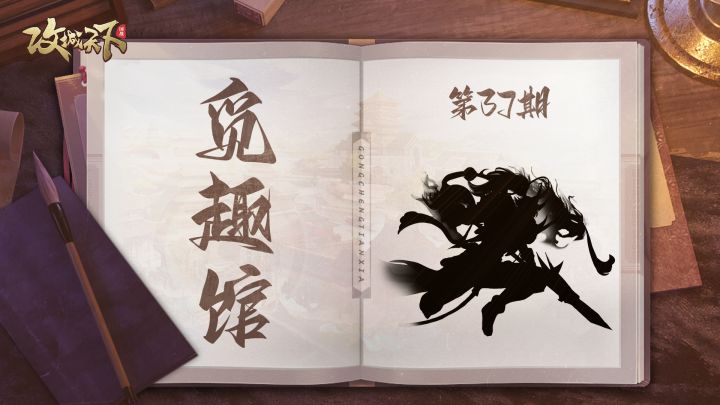 攻城天下
觅趣馆
第37期
GONGCHENGTIANXIA